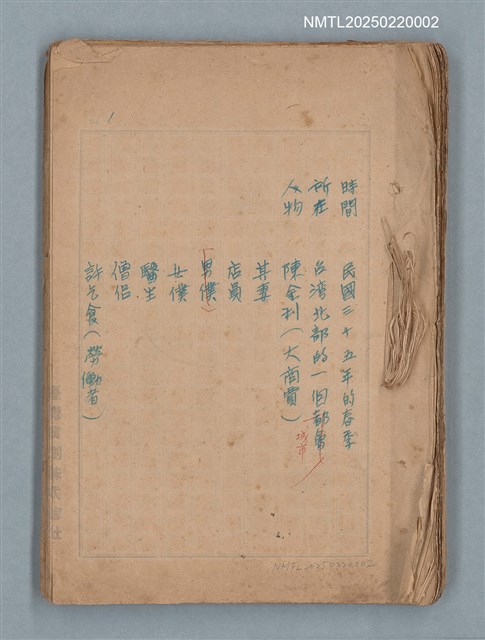 NMTL20250220002
1
時間　民國三十五年的春季
所在　台湾北部的一個都會
城市
人物　陳金利（大商賈）
其妻
店員
「男僕」
女僕
醫生
僧侶
許乞食（勞働者）
NMTL20250220002